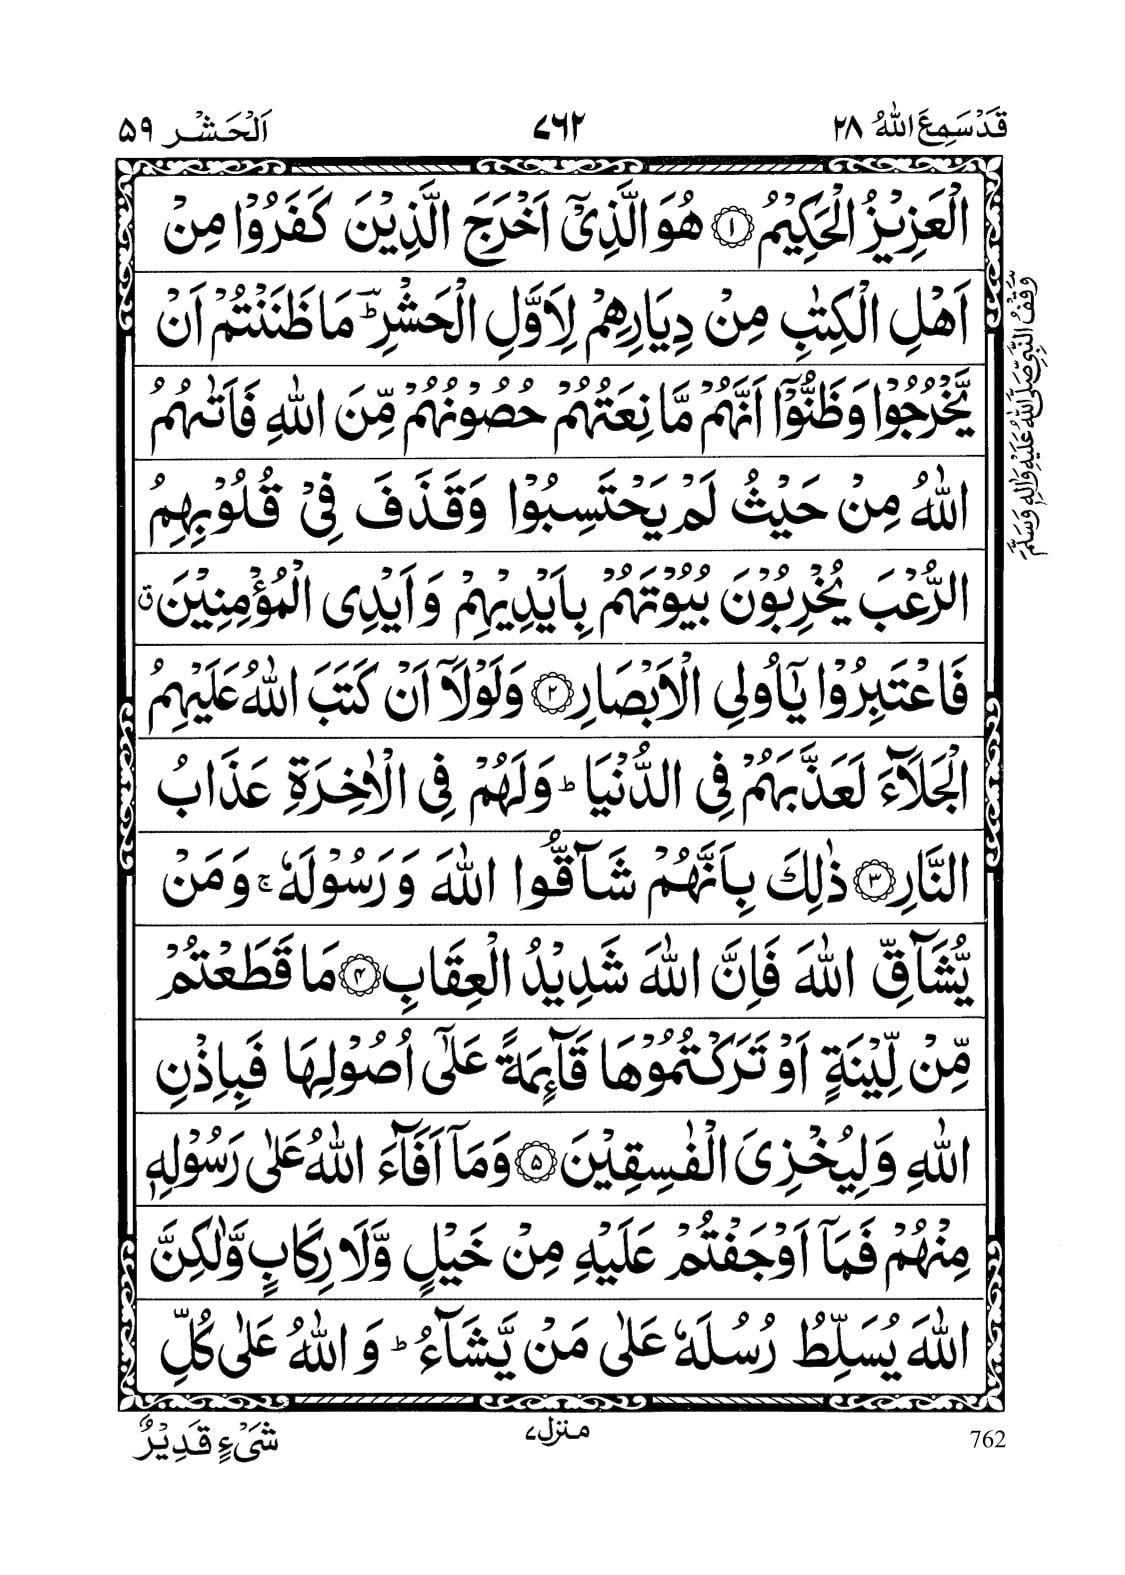 قَدْ سَمِعَ اللّٰهُ ۲۸
۷۶۲
اَلْحَشْر ۵۹
الْعَزِيْزُ الْحَكِيْمُ ۝۱ هُوَ الَّذِيْۤ اَخْرَجَ الَّذِيْنَ كَفَرُوْا مِنْ
اَهْلِ الْكِتٰبِ مِنْ دِيَارِهِمْ لِاَوَّلِ الْحَشْرِ ؔؕ مَا ظَنَنْتُمْ اَنْ
يَّخْرُجُوْا وَظَنُّوْۤا اَنَّهُمْ مَّانِعَتُهُمْ حُصُوْنُهُمْ مِّنَ اللّٰهِ فَاَتٰىهُمُ
اللّٰهُ مِنْ حَيْثُ لَمْ يَحْتَسِبُوْا وَقَذَفَ فِيْ قُلُوْبِهِمُ
الرُّعْبَ يُخْرِبُوْنَ بُيُوْتَهُمْ بِاَيْدِيْهِمْ وَاَيْدِى الْمُؤْمِنِيْنَ ۗ
فَاعْتَبِرُوْا يٰۤاُولِي الْاَبْصَارِ ۝۲ وَلَوْلَاۤ اَنْ كَتَبَ اللّٰهُ عَلَيْهِمُ
الْجَلَآءَ لَعَذَّبَهُمْ فِي الدُّنْيَا ؕ وَلَهُمْ فِي الْاٰخِرَةِ عَذَابُ
النَّارِ ۝۳ ذٰلِكَ بِاَنَّهُمْ شَآقُّوا اللّٰهَ وَرَسُوْلَهٗ ۚ وَمَنْ
يُّشَآقِّ اللّٰهَ فَاِنَّ اللّٰهَ شَدِيْدُ الْعِقَابِ ۝۴ مَا قَطَعْتُمْ
مِّنْ لِّيْنَةٍ اَوْ تَرَكْتُمُوْهَا قَآئِمَةً عَلٰۤى اُصُوْلِهَا فَبِاِذْنِ
اللّٰهِ وَلِيُخْزِىَ الْفٰسِقِيْنَ ۝۵ وَمَاۤ اَفَآءَ اللّٰهُ عَلٰى رَسُوْلِهٖ
مِنْهُمْ فَمَاۤ اَوْجَفْتُمْ عَلَيْهِ مِنْ خَيْلٍ وَّلَا رِكَابٍ وَّلٰكِنَّ
اللّٰهَ يُسَلِّطُ رُسُلَهٗ عَلٰى مَنْ يَّشَآءُ ؕ وَاللّٰهُ عَلٰى كُلِّ
وَقْفُ النَّبِيِّ صَلَّى اللّٰهُ عَلَيْهِ وَاٰلِهٖ وَسَلَّمَ
762
منزل ۷
شَيْءٍ قَدِيْرٌ